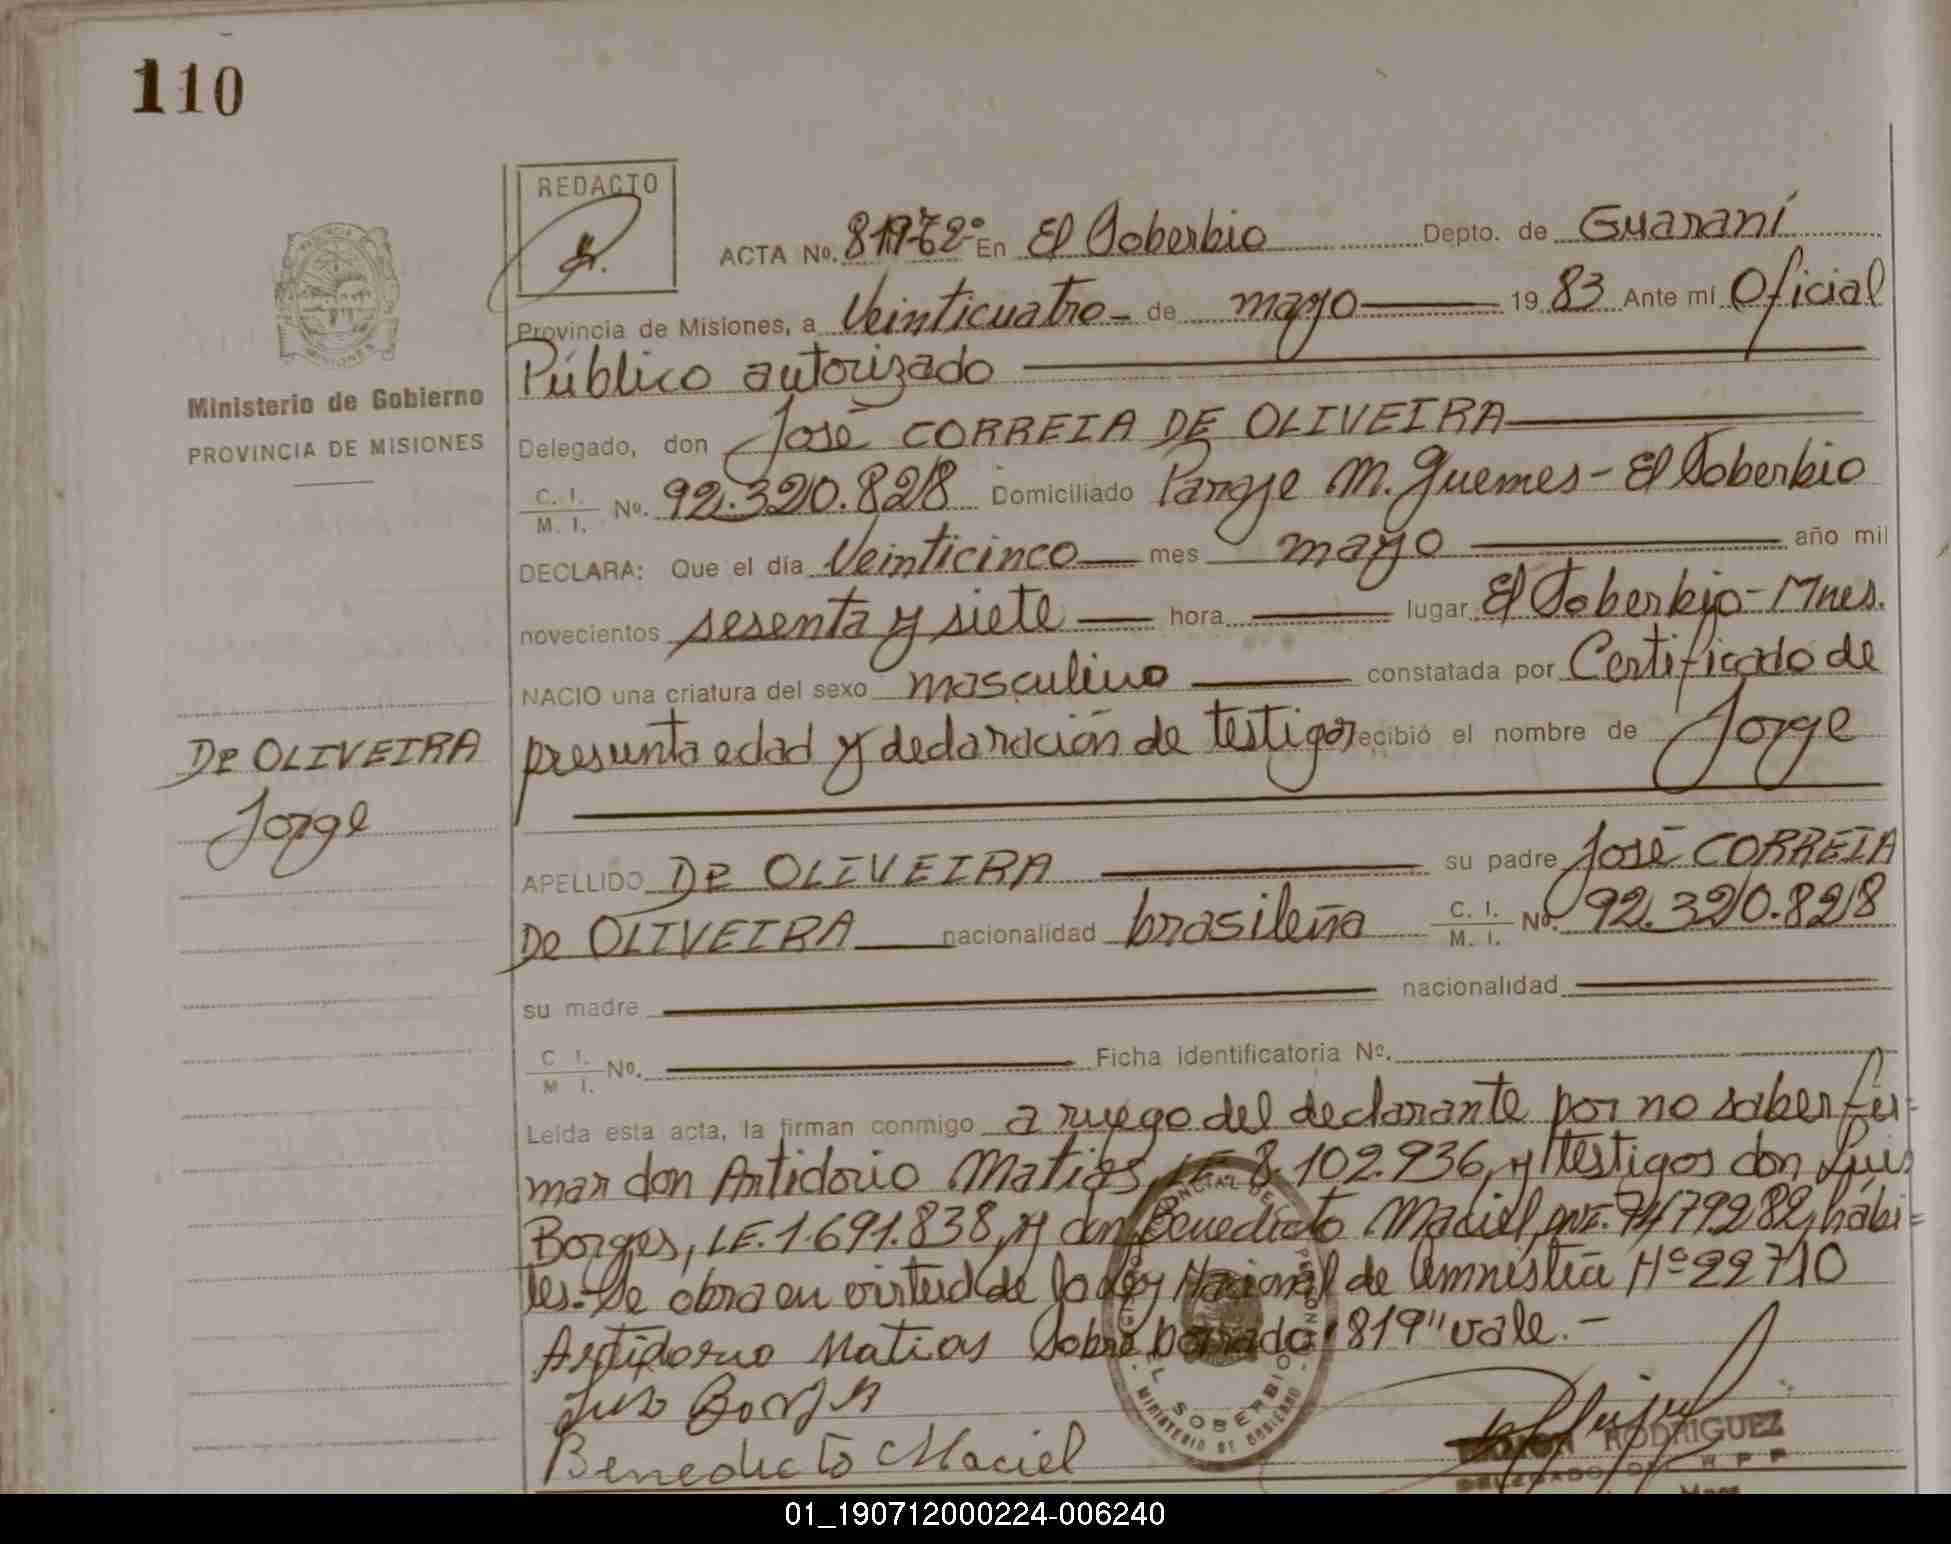 110
REDACTO
ACTA No. 819-T2º En El Soberbio Depto. de Guaraní
Provincia de Misiones, a Veinticuatro - de mayo 19 83 Ante mí Oficial
Público autorizado
Ministerio de Gobierno
PROVINCIA DE MISIONES
Delegado, don José CORREIA DE OLIVEIRA
C. I. M. I. No. 92.320.828 Domiciliado Paraje M. Guemes - El Soberbio
DECLARA: Que el día Veinticinco mes mayo año mil
novecientos sesenta y siete hora lugar El Soberbio - Mnes.
NACIO una criatura del sexo masculino constatada por Certificado de
presunta edad y declaración de testigos recibió el nombre de Jorge
De OLIVEIRA
Jorge
APELLIDO De OLIVEIRA su padre José CORREIA
De OLIVEIRA nacionalidad brasileña C. I. M. I. No. 92.320.828
su madre nacionalidad
C. I. M. I. No. Ficha identificatoria No.
Leída esta acta, la firman conmigo a ruego del declarante por no saber fir=
mar don Antidorio Matias, LE 8.102.936, y testigos don Luis
Borges, LE. 1.691.838, y don Benedicto Maciel, DNI. 7479282, hábi=
les.- Se obra en virtud de la ley Nacional de Amnistia Nº 22710
Antidorio Matias Sobre borrado "819" vale.-
Luis Borges
Benedicto Maciel
EL SOBERBIO
MINISTERIO DE GOBIERNO
RODRIGUEZ
DELEGADO DEL R P P
01_190712000224-006240